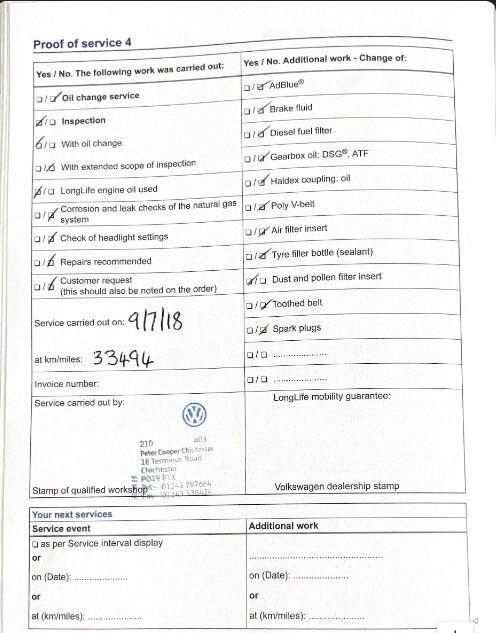 Proof of service 4
Yes / No. The following work was carried out:
Oil change service
Inspection
With oil change
With extended scope of inspection
LongLife engine oil used
Corrosion and leak checks of the natural gas
system
Check of headlight settings
Repairs recommended
Customer request
(this should also be noted on the order)
Service carried out on: 9/7/18
at km/miles: 33494
Invoice number:
Service carried out by:
210 a03
Peter Cooper Chichester
18 Terminus Road
Chichester
PO19 8TX
01243 787684
01243 538426
Stamp of qualified workshop
Yes / No. Additional work - Change of:
AdBlue®
Brake fluid
Diesel fuel filter
Gearbox oil: DSG®, ATF
Haldex coupling: oil
Poly V-belt
Air filter insert
Tyre filler bottle (sealant)
Dust and pollen filter insert
Toothed belt
Spark plugs
LongLife mobility guarantee:
Volkswagen dealership stamp
Your next services
Service event
as per Service interval display
or
on (Date): ....................
or
at (km/miles): ....................
Additional work
on (Date): ....................
or
at (km/miles): ....................